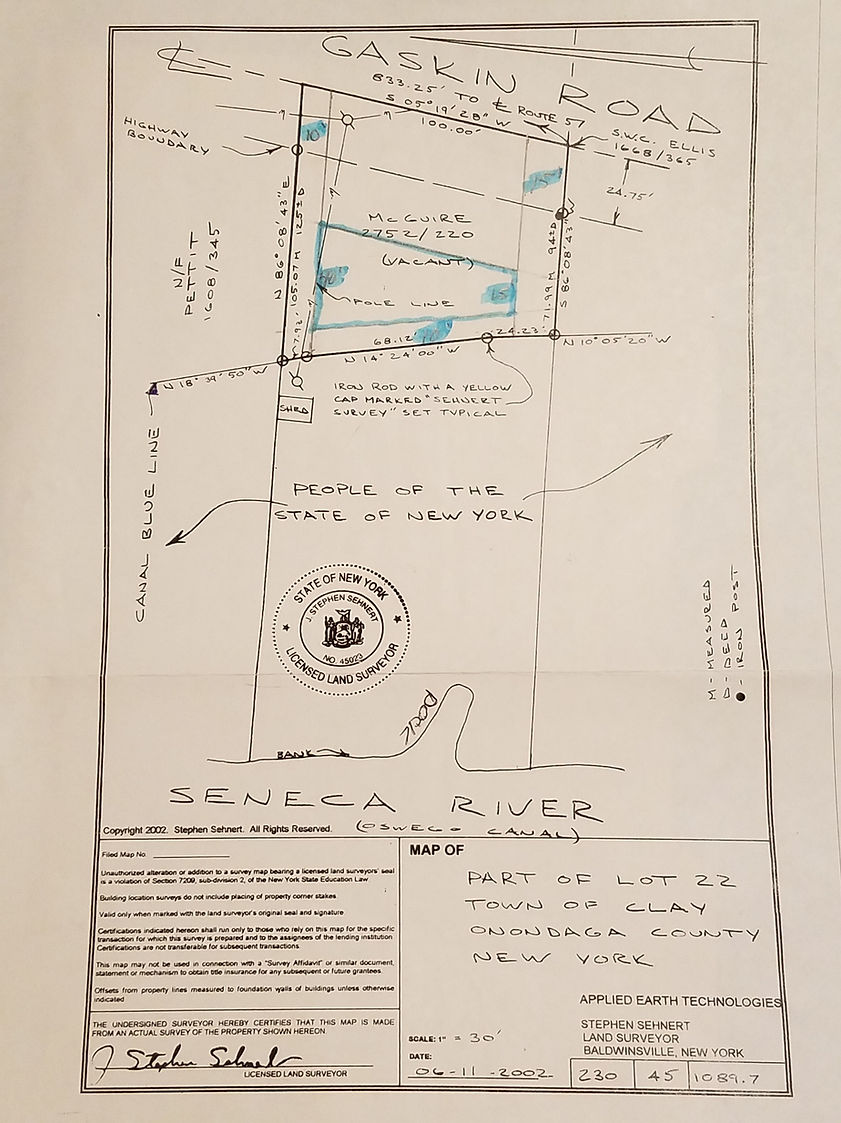 GASKIN ROAD
833.25' TO ℄ ROUTE 57
S 05° 19' 28" W
100.00'
HIGHWAY
BOUNDARY
S.W.C. ELLIS
1668/365
24.75'
10'
15'
N/F
PETTIT
1608/345
N 86° 08' 43" E
105.07 M 125± D
MCGUIRE
2752/220
(VACANT)
POLE LINE
71.99 M 94± D
S 86° 08' 43" W
7.93'
68.12'
24.23'
N 18° 39' 50" W
N 14° 24' 00" W
N 10° 05' 20" W
SHED
IRON ROD WITH A YELLOW
CAP MARKED "SEHNERT
SURVEY" SET TYPICAL
CANAL BLUE LINE
PEOPLE OF THE
STATE OF NEW YORK
STATE OF NEW YORK
J. STEPHEN SEHNERT
NO. 45023
LICENSED LAND SURVEYOR
M - MEASURED
D - DEED
● - IRON POST
DOCK
BANK
SENECA RIVER
(OSWEGO CANAL)
Copyright 2002. Stephen Sehnert. All Rights Reserved.
Filed Map No.
Unauthorized alteration or addition to a survey map bearing a licensed land surveyors' seal
is a violation of Section 7209, sub-division 2, of the New York State Education Law.
Building location surveys do not include placing of property corner stakes.
Valid only when marked with the land surveyor's original seal and signature.
Certifications indicated hereon shall run only to those who rely on this map for the specific
transaction for which this survey is prepared and to the assignees of the lending institution.
Certifications are not transferable for subsequent transactions.
This map may not be used in connection with a "Survey Affidavit" or similar document,
statement or mechanism to obtain title insurance for any subsequent or future grantees.
Offsets from property lines measured to foundation walls of buildings unless otherwise
indicated
THE UNDERSIGNED SURVEYOR HEREBY CERTIFIES THAT THIS MAP IS MADE
FROM AN ACTUAL SURVEY OF THE PROPERTY SHOWN HEREON.
J Stephen Sehnert
LICENSED LAND SURVEYOR
MAP OF
PART OF LOT 22
TOWN OF CLAY
ONONDAGA COUNTY
NEW YORK
APPLIED EARTH TECHNOLOGIES
STEPHEN SEHNERT
LAND SURVEYOR
BALDWINSVILLE, NEW YORK
SCALE: 1" = 30'
DATE:
06-11-2002
230 45 1089.7